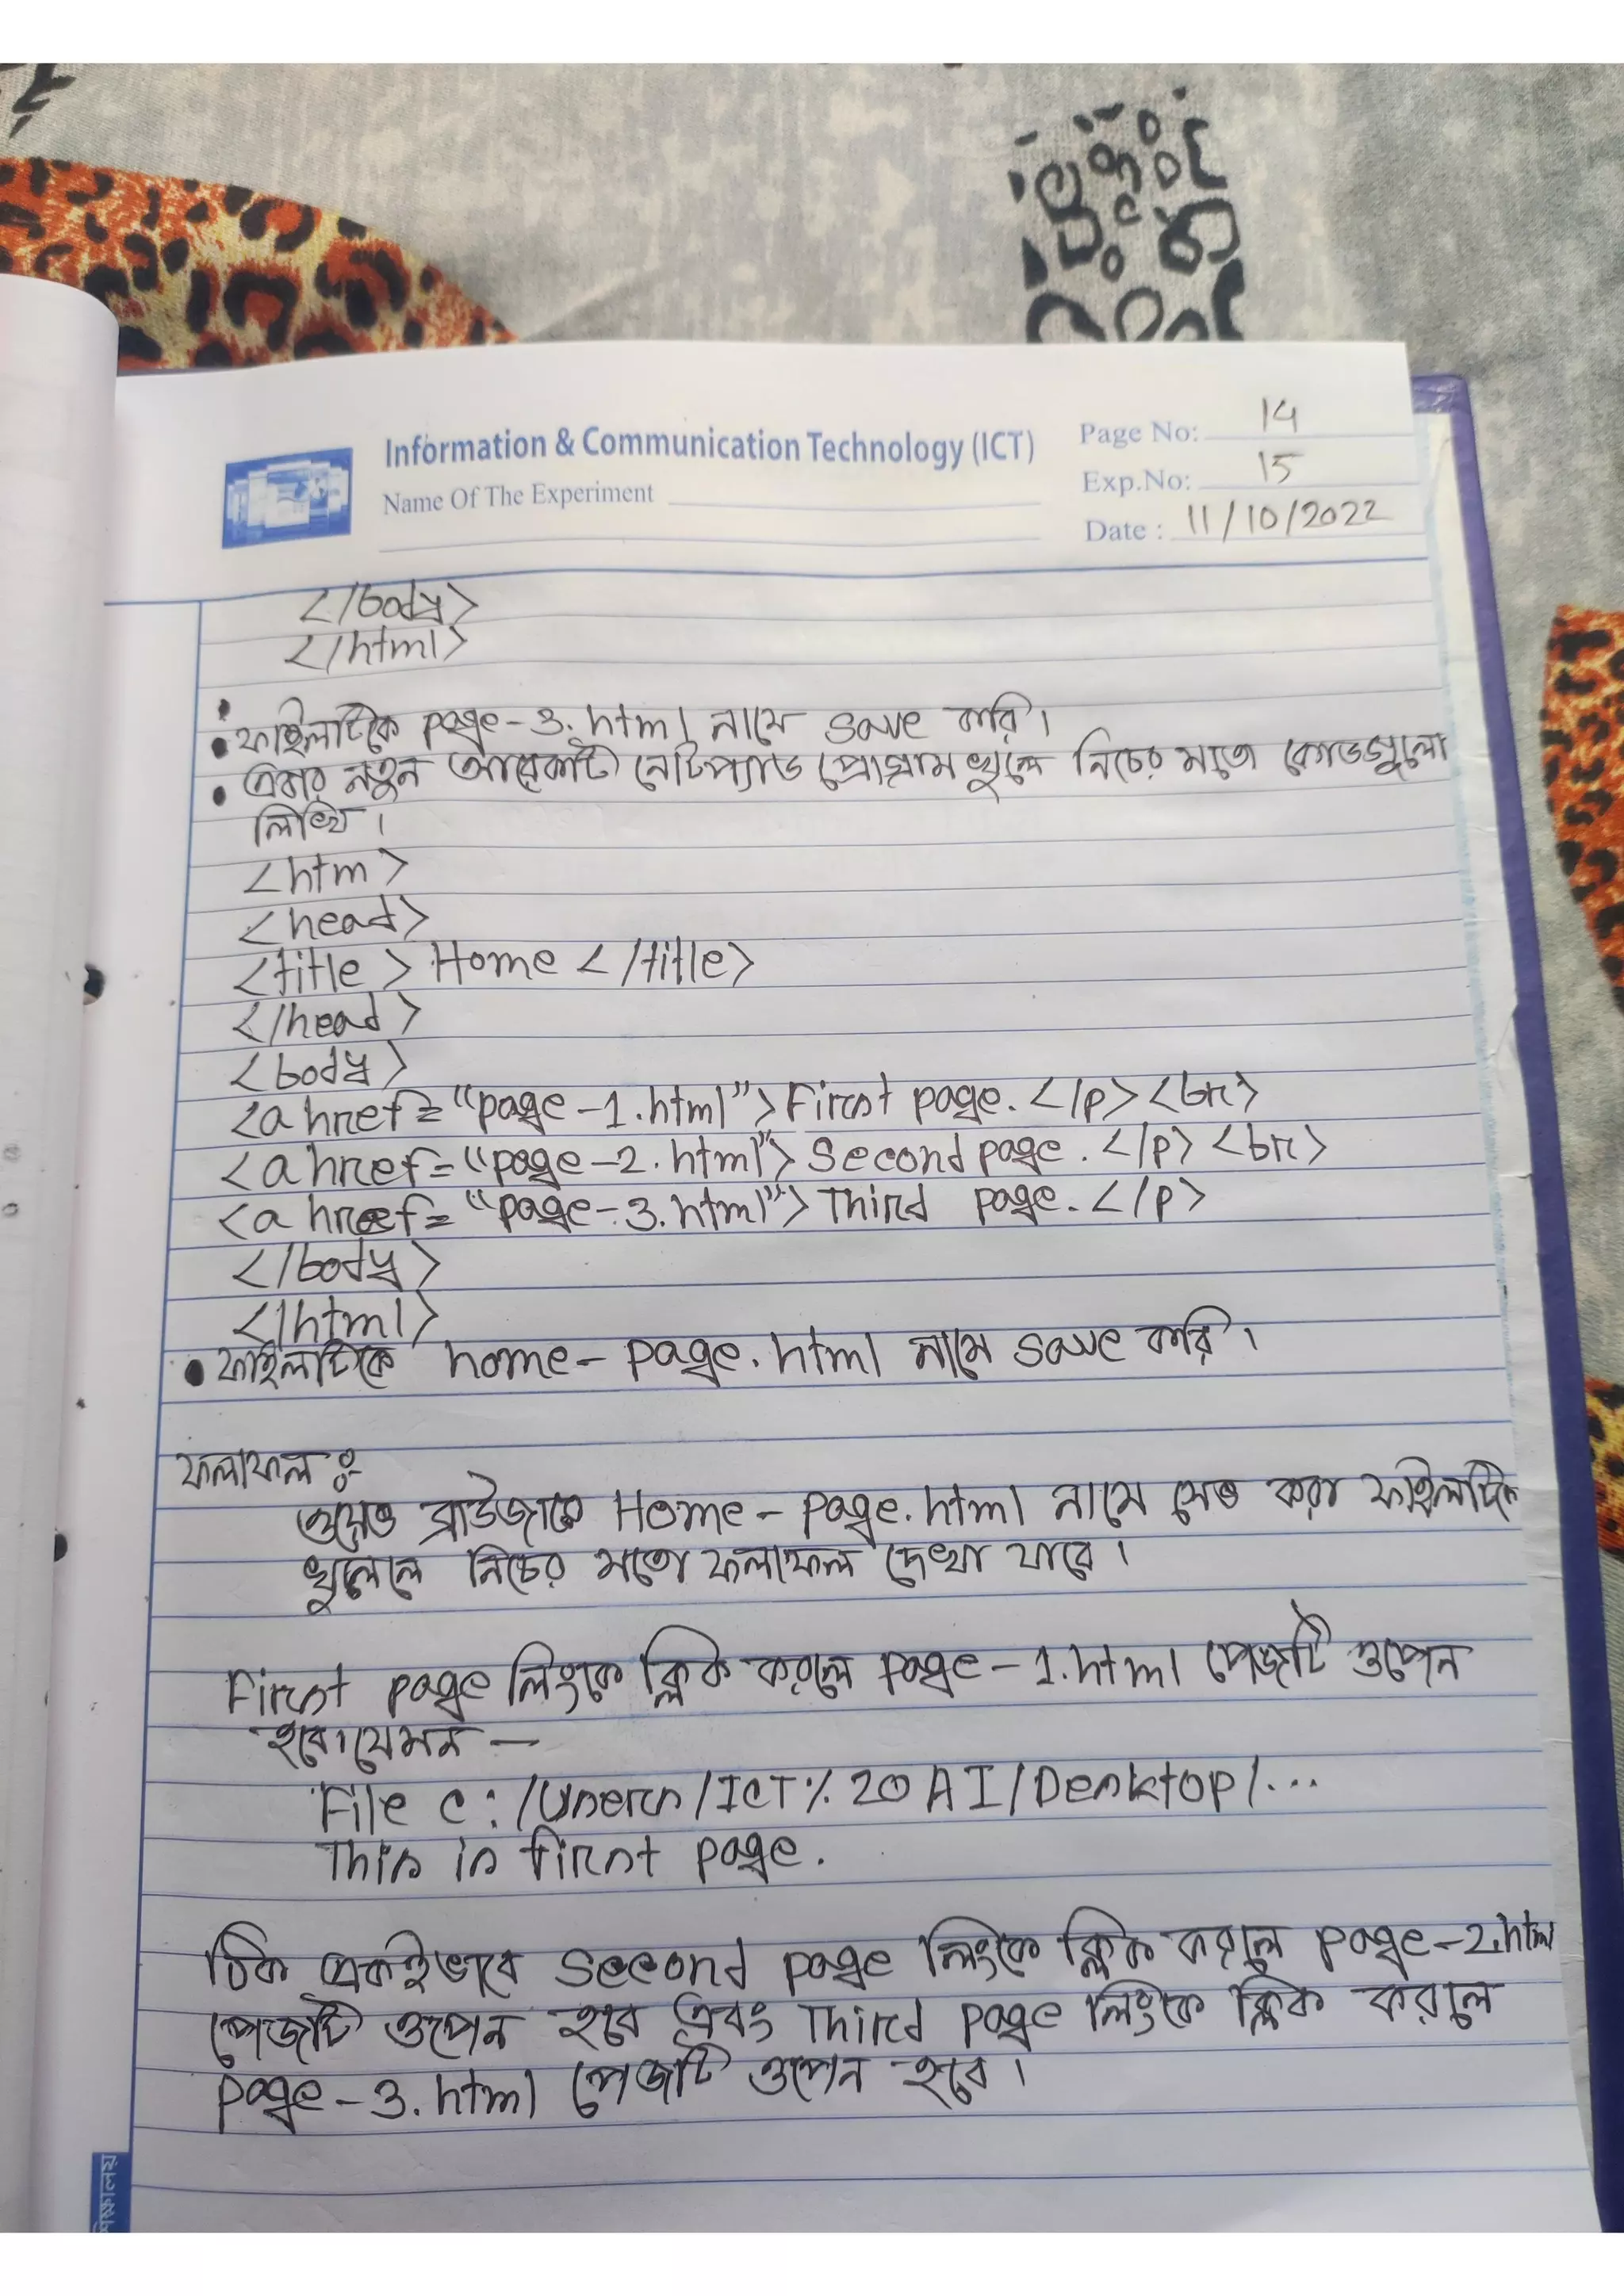 Information & Communication Technology (ICT)
Name Of The Experiment
Page No: 14
Exp.No: 15
Date : 11/10/2022
</body>
</html>
• ফাইলটিকে page-3.html নামে save করি।
• এবার নতুন আরেকটি নোটপ্যাড প্রোগ্রাম খুলে নিচের মতো কোডগুলো
লিখি।
<htm>
<head>
<title> Home </title>
</head>
<body>
<a href="page-1.html">First page. </p><br>
<a href="page-2.html">Second page. </p><br>
<a href="page-3.html">Third page. </p>
</body>
</html>
• ফাইলটিকে home-page.html নামে save করি।
ফলাফল ঃ-
ওয়েভ ব্রাউজারে Home-page.html নামে সেভ করা ফাইলটিকে
খুললে নিচের মতো ফলাফল দেখা যাবে।
First page লিংকে ক্লিক করলে page-1.html পেজটি ওপেন
হবে। যেমন —
File c:/Users/ICT%20AI/Desktop/...
This is first page.
ঠিক একইভাবে Second page লিংকে ক্লিক করলে page-2.html
পেজটি ওপেন হবে এবং Third page লিংকে ক্লিক করলে
page-3.html পেজটি ওপেন হবে।